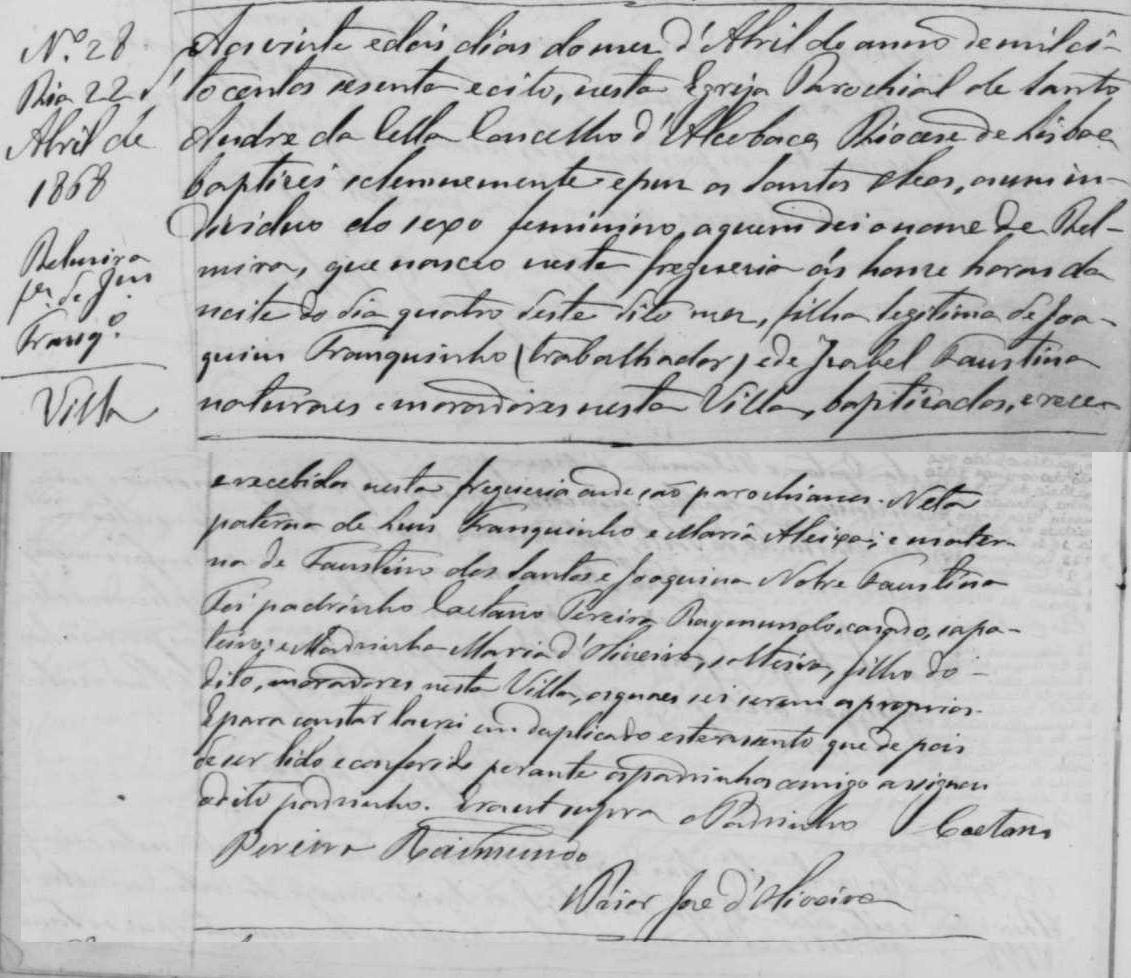 Nº 28
Dia 22 d'
Abril de
1868
Belmira
fª. de Jm
Franqº.
Villa
Aos vinte e dois dias do mez d'Abril do anno de mil oi-
tocentos sesenta e oito, nesta Egreja Parochial de Santo
Andre da Cella Concelho d'Alcobaça Diocese de Lisboa
baptizei solemnemente e puz os Santos Oleos, a um in-
dividuo do sexo feminino, a quem dei o nome de Bel-
mira, que nasceo nesta freguezia ás honze horas da
noite do dia quatro deste dito mez, filha legitima de Joa-
quim Franquinho (trabalhador) e de Izabel Faustina
naturaes e moradores nesta Villa, baptizados, e rece-
e recebidos nesta freguezia onde são parochianos. Neta
paterna de Luis Franquinho e Maria Aleixa; e mater-
na de Faustino dos Santos e Joaquina Nobre Faustina
Foi padrinho Caetano Pereira Raymundo, casado, sapa-
teiro; e Madrinha Maria d'Oliveira, solteira, filha do
dito, moradores nesta Villa, os quaes sei serem os proprios.
E para constar lavrei em duplicado este assento que depois
de ser lido e conferido perante os padrinhos comigo assignou
o dito padrinho. Era ut supra o Padrinho Caetano
Pereira Raimundo
O Prior Jose d'Oliveira